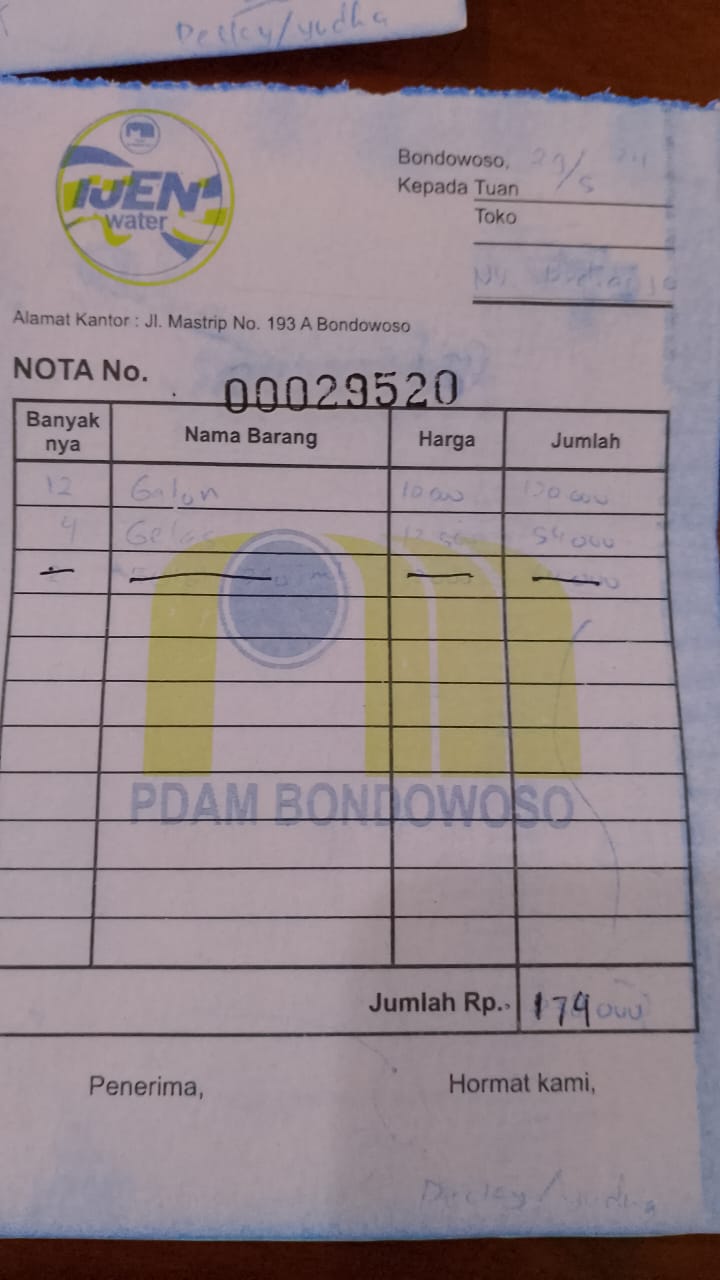 Desley/yudha
IJEN
water
Bondowoso, 29/5 24
Kepada Tuan
Toko
Alamat Kantor : Jl. Mastrip No. 193 A Bondowoso
NOTA No. 00029520
Banyak nya Nama Barang Harga Jumlah
12 Galon 10 000 120 000
4 Gelas 54 000
PDAM BONDOWOSO
Jumlah Rp. 174 000
Penerima, Hormat kami,